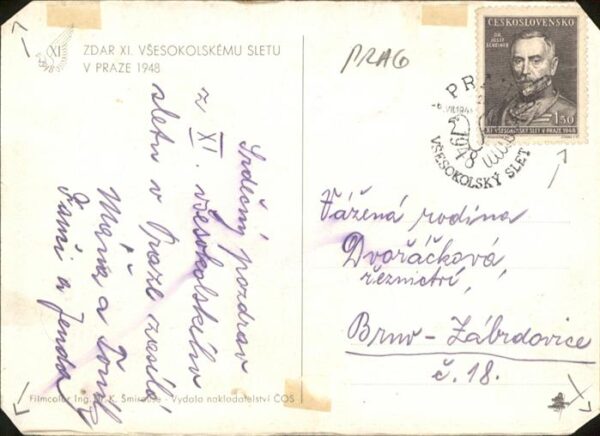 XI
ZDAR XI. VŠESOKOLSKÉMU SLETU
V PRAZE 1948
PRAG
ČESKOSLOVENSKO
DR. JOSEF
SCHEINER
1.50
XI. VŠESOKOLSKÝ SLET V PRAZE 1948
PR
1948
VŠESOKOLSKÝ SLET
Srdečný pozdrav
z XI. všesokolského
sletu v Praze zasílá
Máňa a Toník
Fanni a Jenda
Vážená rodina
Dvořáčková
řeznictví,
Brno-Zábrdovice
č. 18.
Filmcolor Ing. K. Šmirous - Vydalo nakladatelství ČOS